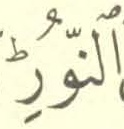 ٱلنُّوْرِؕ